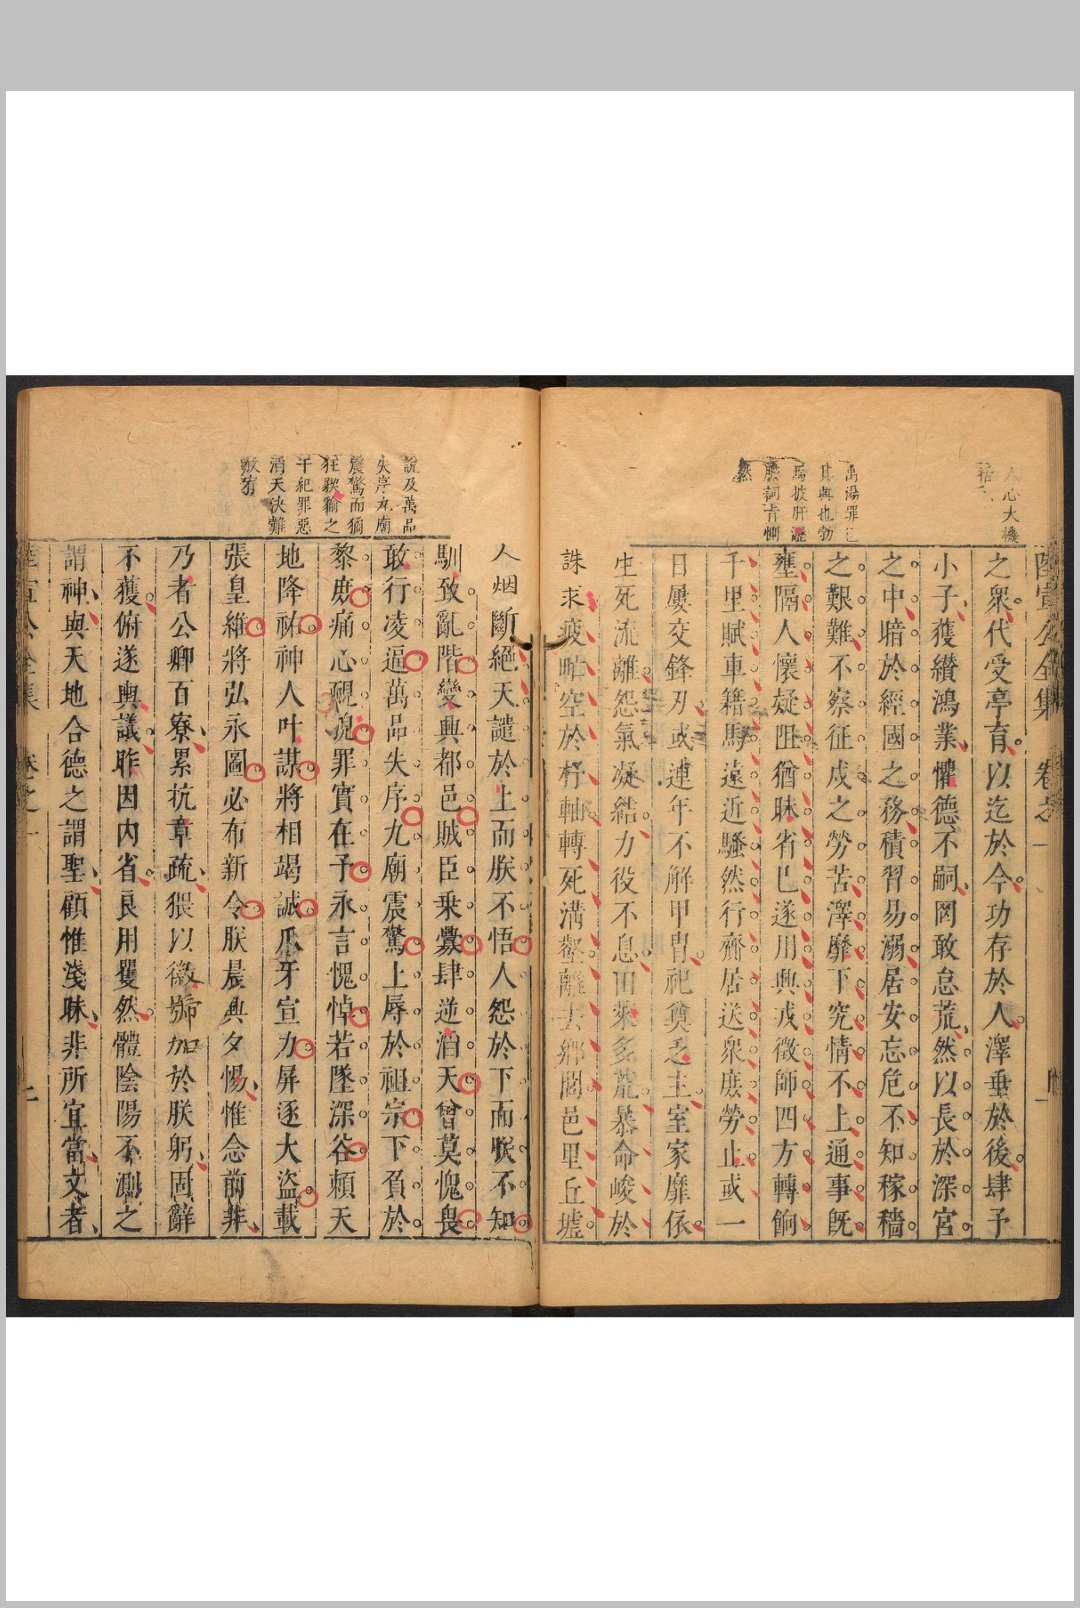 陸宣公全集 卷之一
人心大機
之衆代受亭育以迄於今功存於人澤垂於後肆予
小子獲纘鴻業懼德不嗣罔敢怠荒然以長於深宮
之中暗於經國之務積習易溺居安忘危不知稼穡
之艱難不察征戍之勞苦澤靡下究情不上通事既
壅隔人懷疑阻猶昧省已遂用興戎徵師四方轉餉
千里賦車籍馬遠近騷然行齎居送衆庶勞止或一
日屢交鋒刃或連年不解甲冑祀奠乏主室家靡依
生死流離怨氣凝結力役不息田萊多荒暴命峻於
誅求疲甿空於杼軸轉死溝壑離去鄉閭邑里丘墟
禹湯罪已
其興也勃
焉披肝瀝
膽詞旨惻
然
人烟斷絕天譴於上而朕不悟人怨於下而朕不知
馴致亂階變興都邑賊臣乘釁肆逆滔天曾莫愧畏
敢行凌逼萬品失序九廟震驚上辱於祖宗下負於
黎庶痛心靦貌罪實在予永言愧悼若墜深谷賴天
地降祐神人叶謀將相竭誠爪牙宣力屏逐大盜載
張皇維將弘永圖必布新令朕晨興夕惕惟念前非
乃者公卿百寮累抗章疏猥以徽號加於朕躬固辭
不獲俯遂輿議昨因內省良用矍然體陰陽不測之
謂神與天地合德之謂聖顧惟淺昧非所宜當文者
說及萬品
失序九廟
震驚而猶
狂猘猰㺄之
干紀罪惡
滔天決難
赦宥
陸宣公全集 卷之一